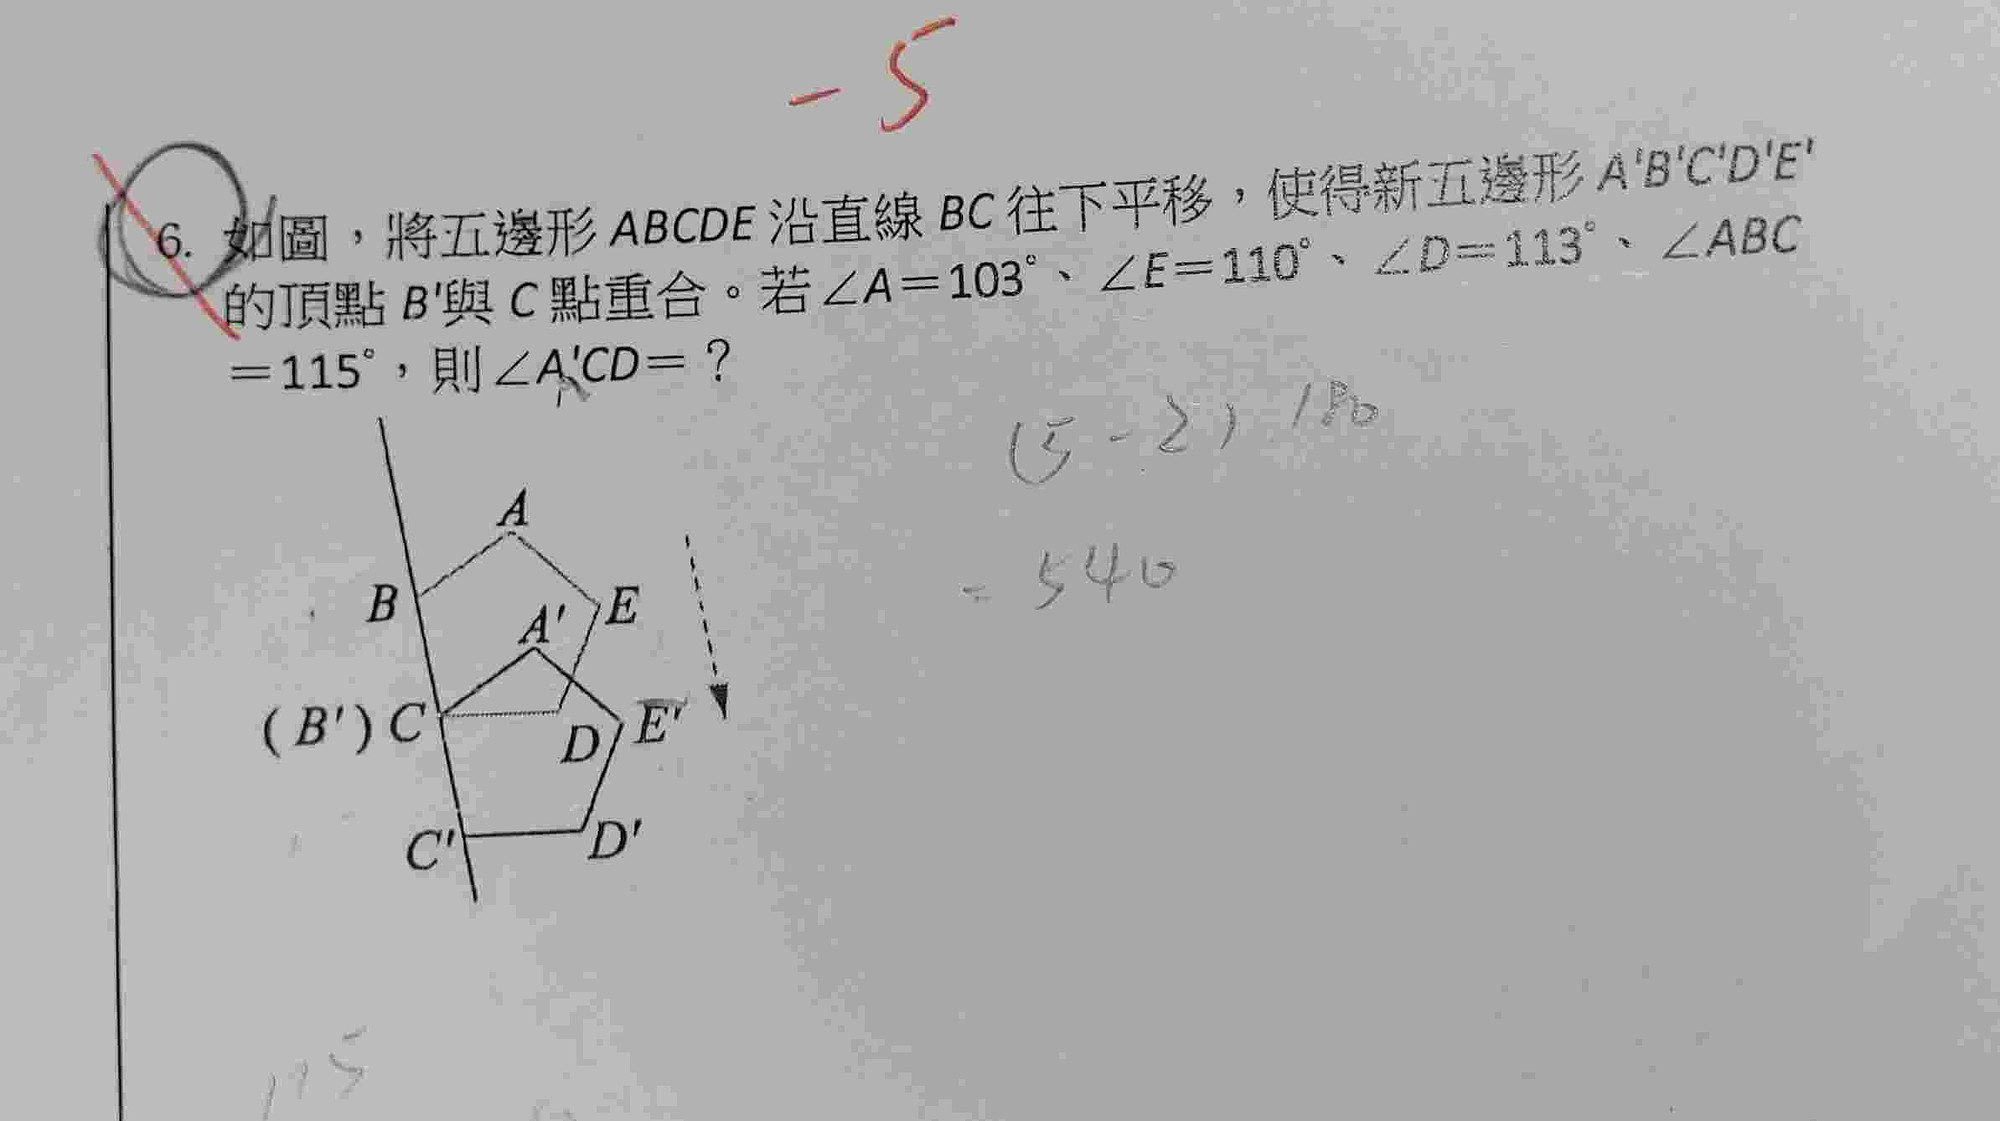 -5
6. 如圖，將五邊形 ABCDE 沿直線 BC 往下平移，使得新五邊形 A'B'C'D'E'
的頂點 B'與 C 點重合。若∠A＝103°、∠E＝110°、∠D＝113°、∠ABC
＝115°，則∠A'CD＝？
(5-2) 180
= 540
A
B
E
A'
(B') C
D
E'
C'
D'